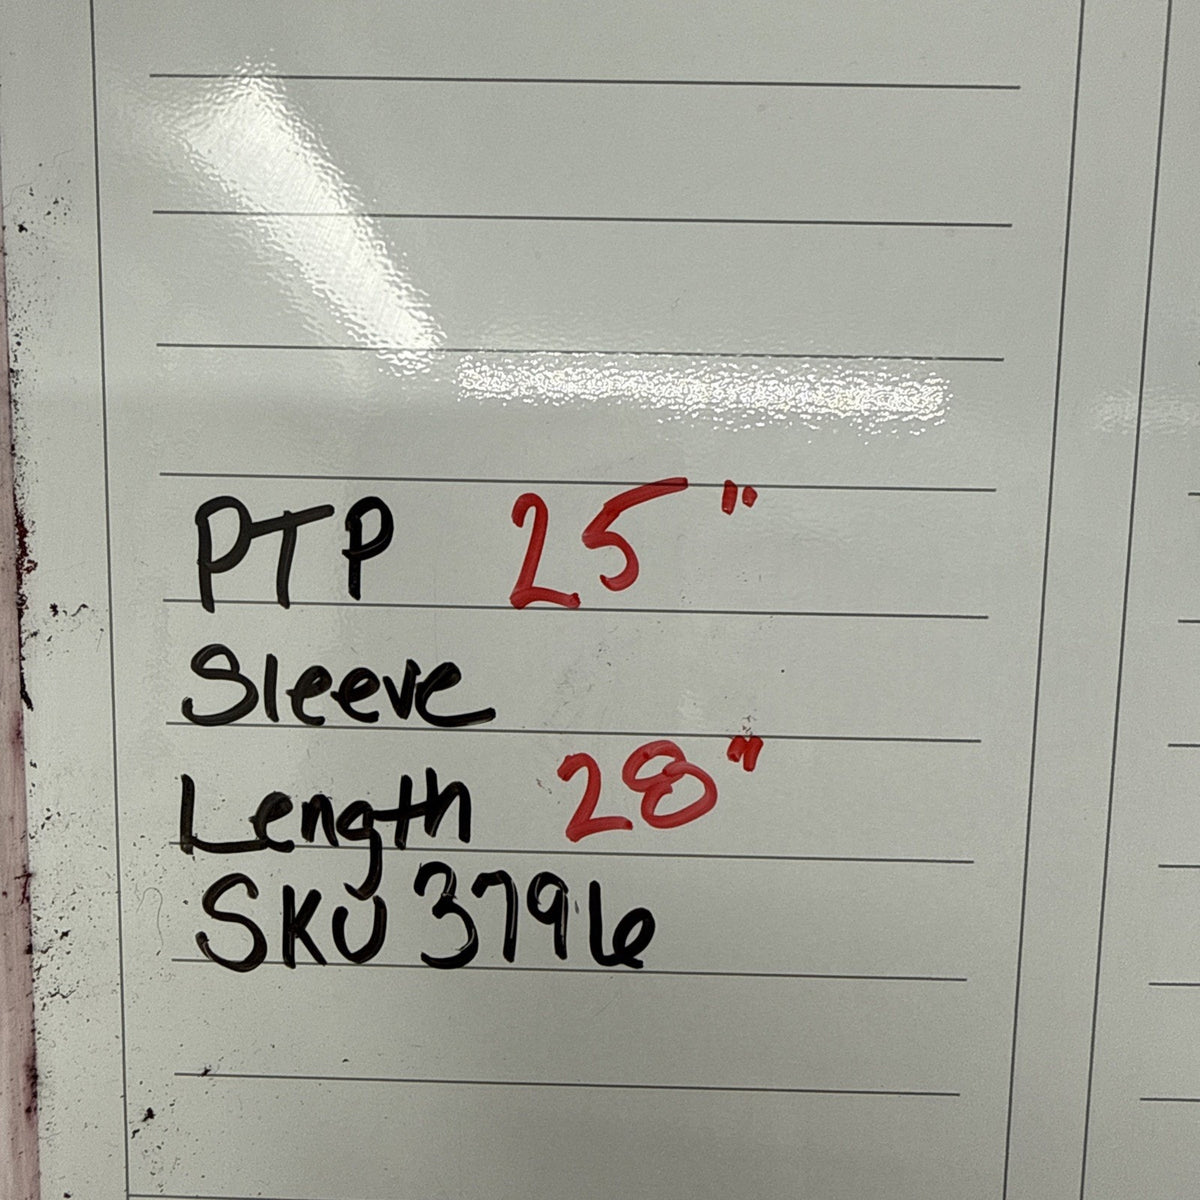 PTP 25"
Sleeve
Length 28"
SKU 3796